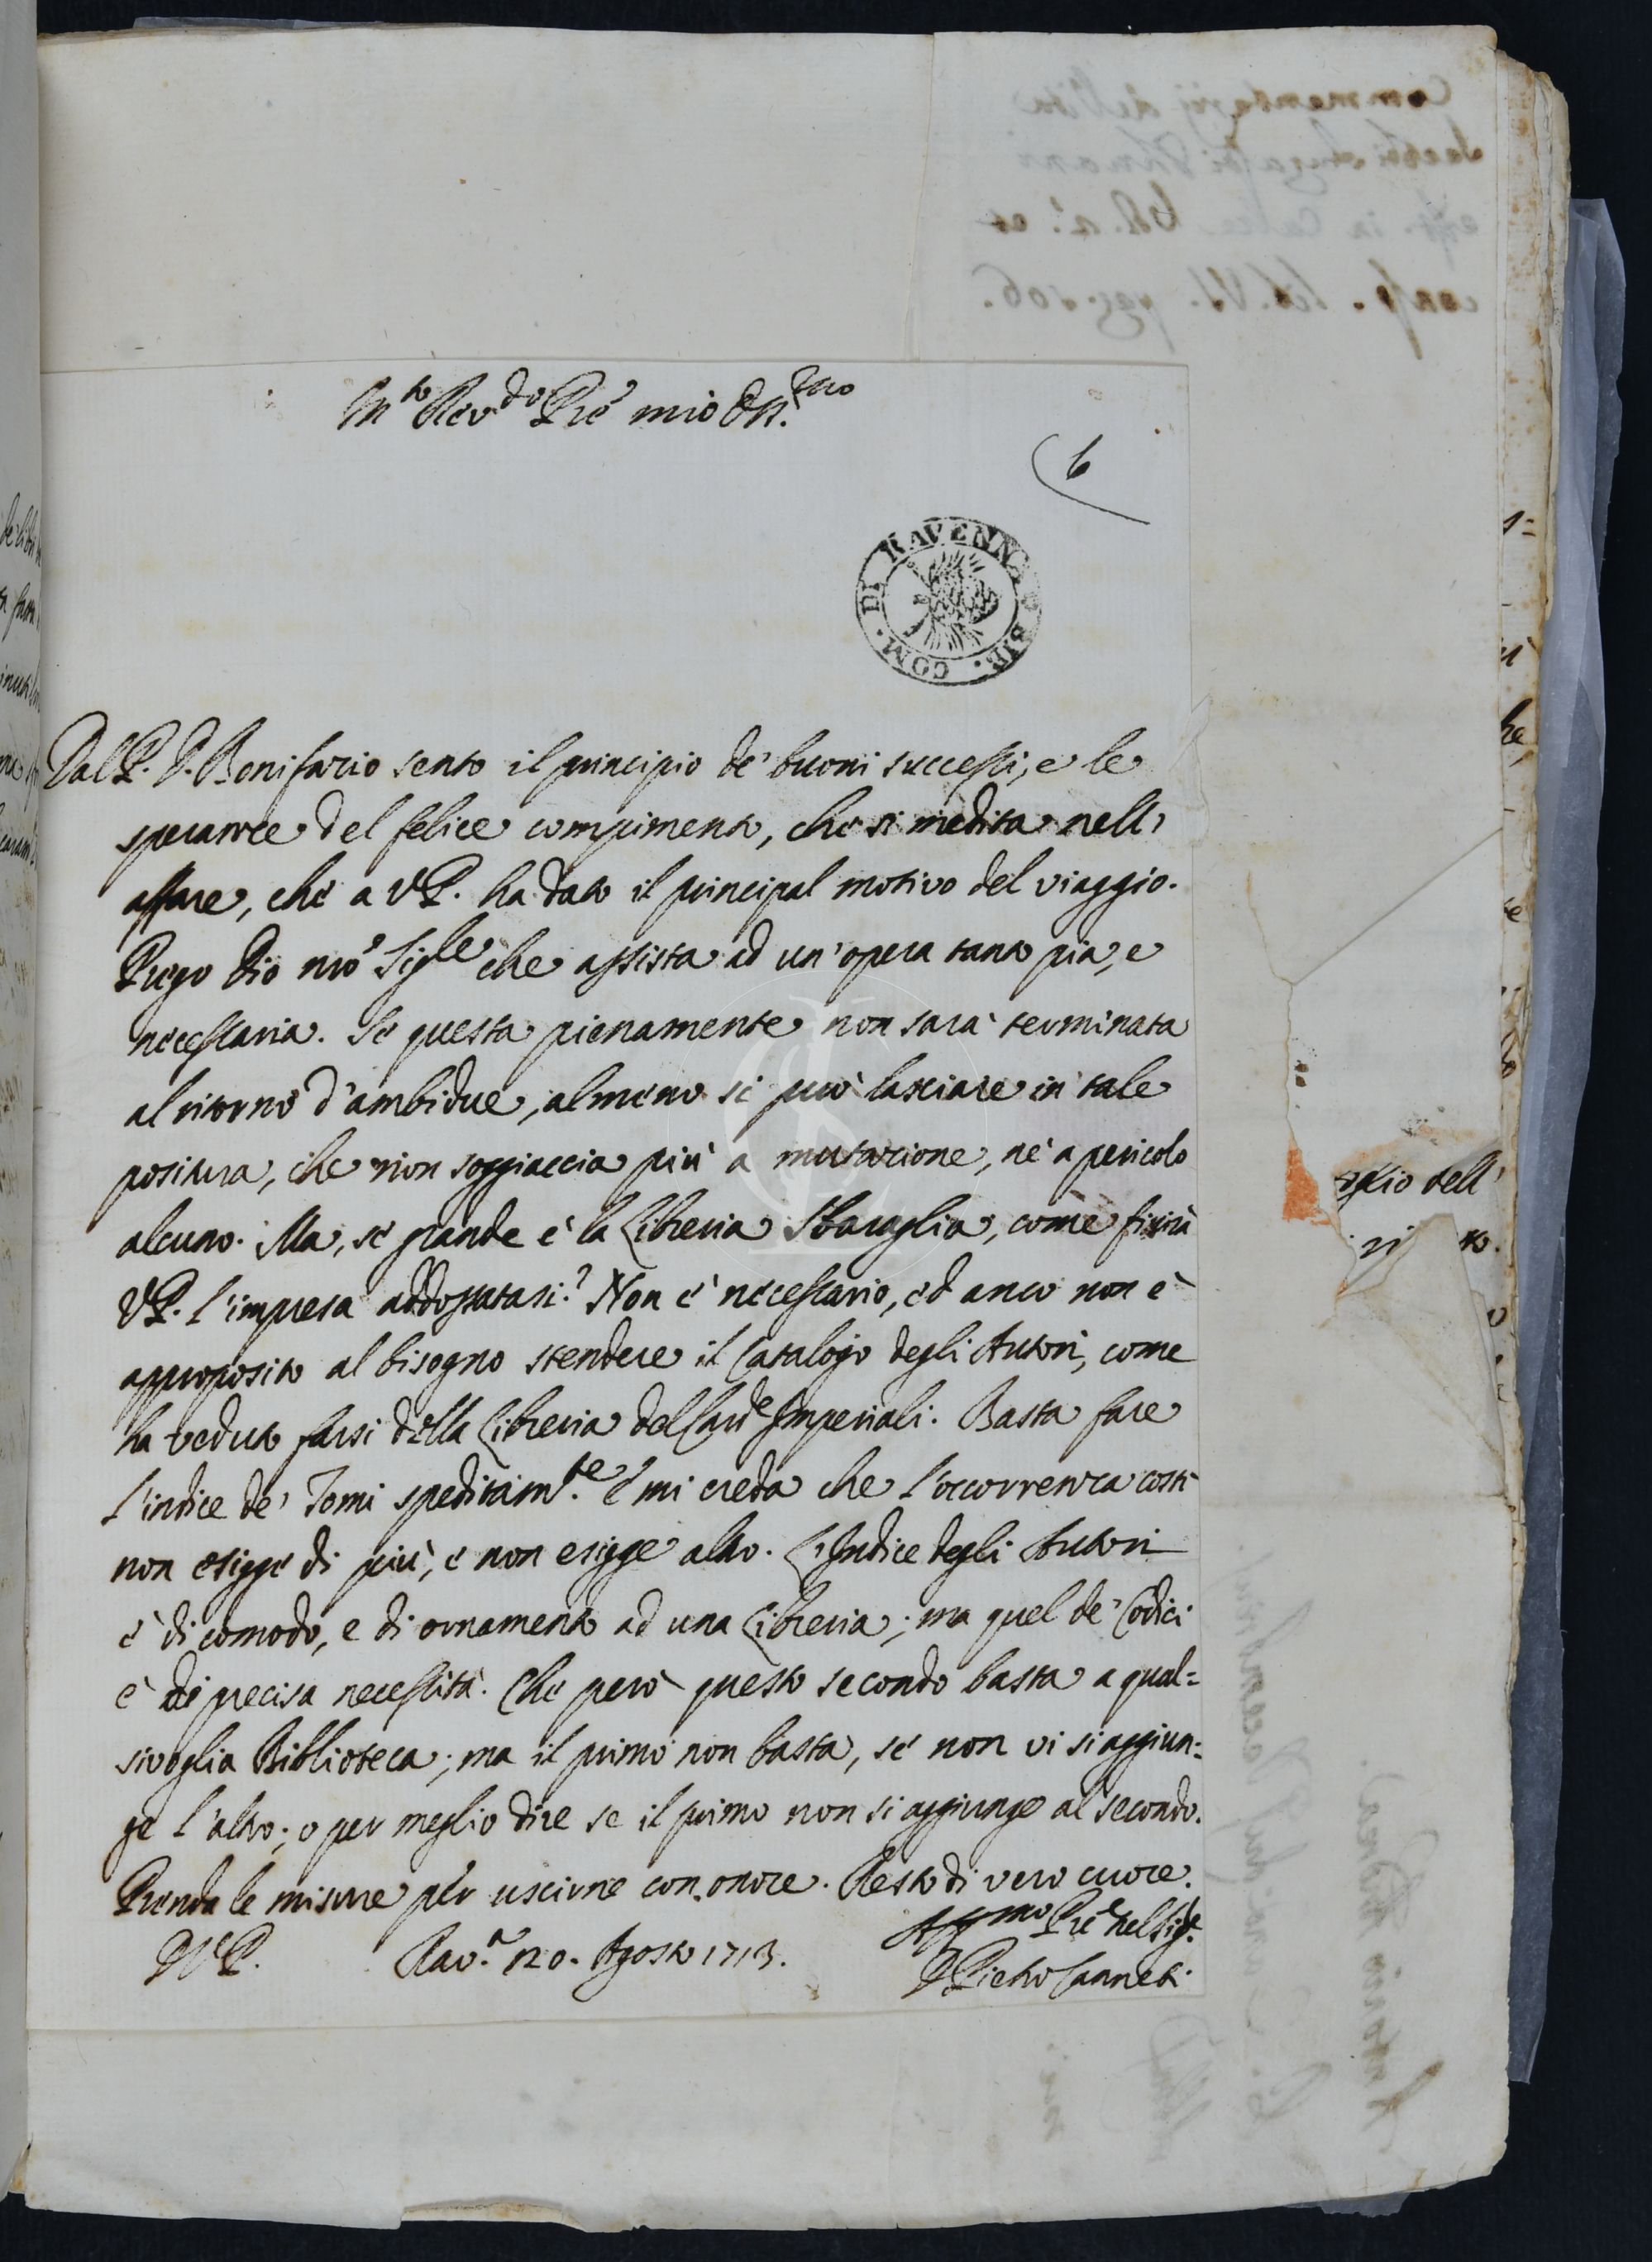 M.to Rev.do P're mio Oss.mo
6
COM. DI RAVENNA BIB.
Dal P. D. Bonifazio sento il principio de' buoni successi, e le
speranze del felice compimento, che si medita nell'
affare, che a V.P. ha dato il principal motivo del viaggio.
Prego Dio n'ro Sig.le che assista ad un'opera tanto pia, e
necessaria. Se questa pienamente non sarà terminata
al ritorno d'ambidue, almeno si può lasciare in tale
positura, che non soggiaccia più a mutazione, nè a pericolo
alcuno. Ma, se grande è la Libreria Sbaraglia, come finirà
V.P. l'impresa addossatasi? Non è necessario, ed anco non è
approposito al bisogno stendere il Catalogo degli Autori, come
ha veduto farsi della Libreria del Card.e Imperiali. Basta fare
l'indice de' Tomi speditam.te E mi creda che l'occorrenza costì
non esigge di più, e non esigge altro. L'Indice degli Autori
è di comodo, e di ornamento ad una Libreria; ma quel de' Codici
è di precisa necessità. Che però questo secondo basta a qual=
sivoglia Biblioteca; ma il primo non basta, se non vi si aggiun=
ge l'altro; o per meglio dire se il primo non si aggiunge al secondo.
Prenda le misure per uscirne con onore. Resto di vero cuore.
D.V.P. Rav.a 20. Agosto 1713.
Aff.mo P're nel Sig.e
D Pietro Canneti